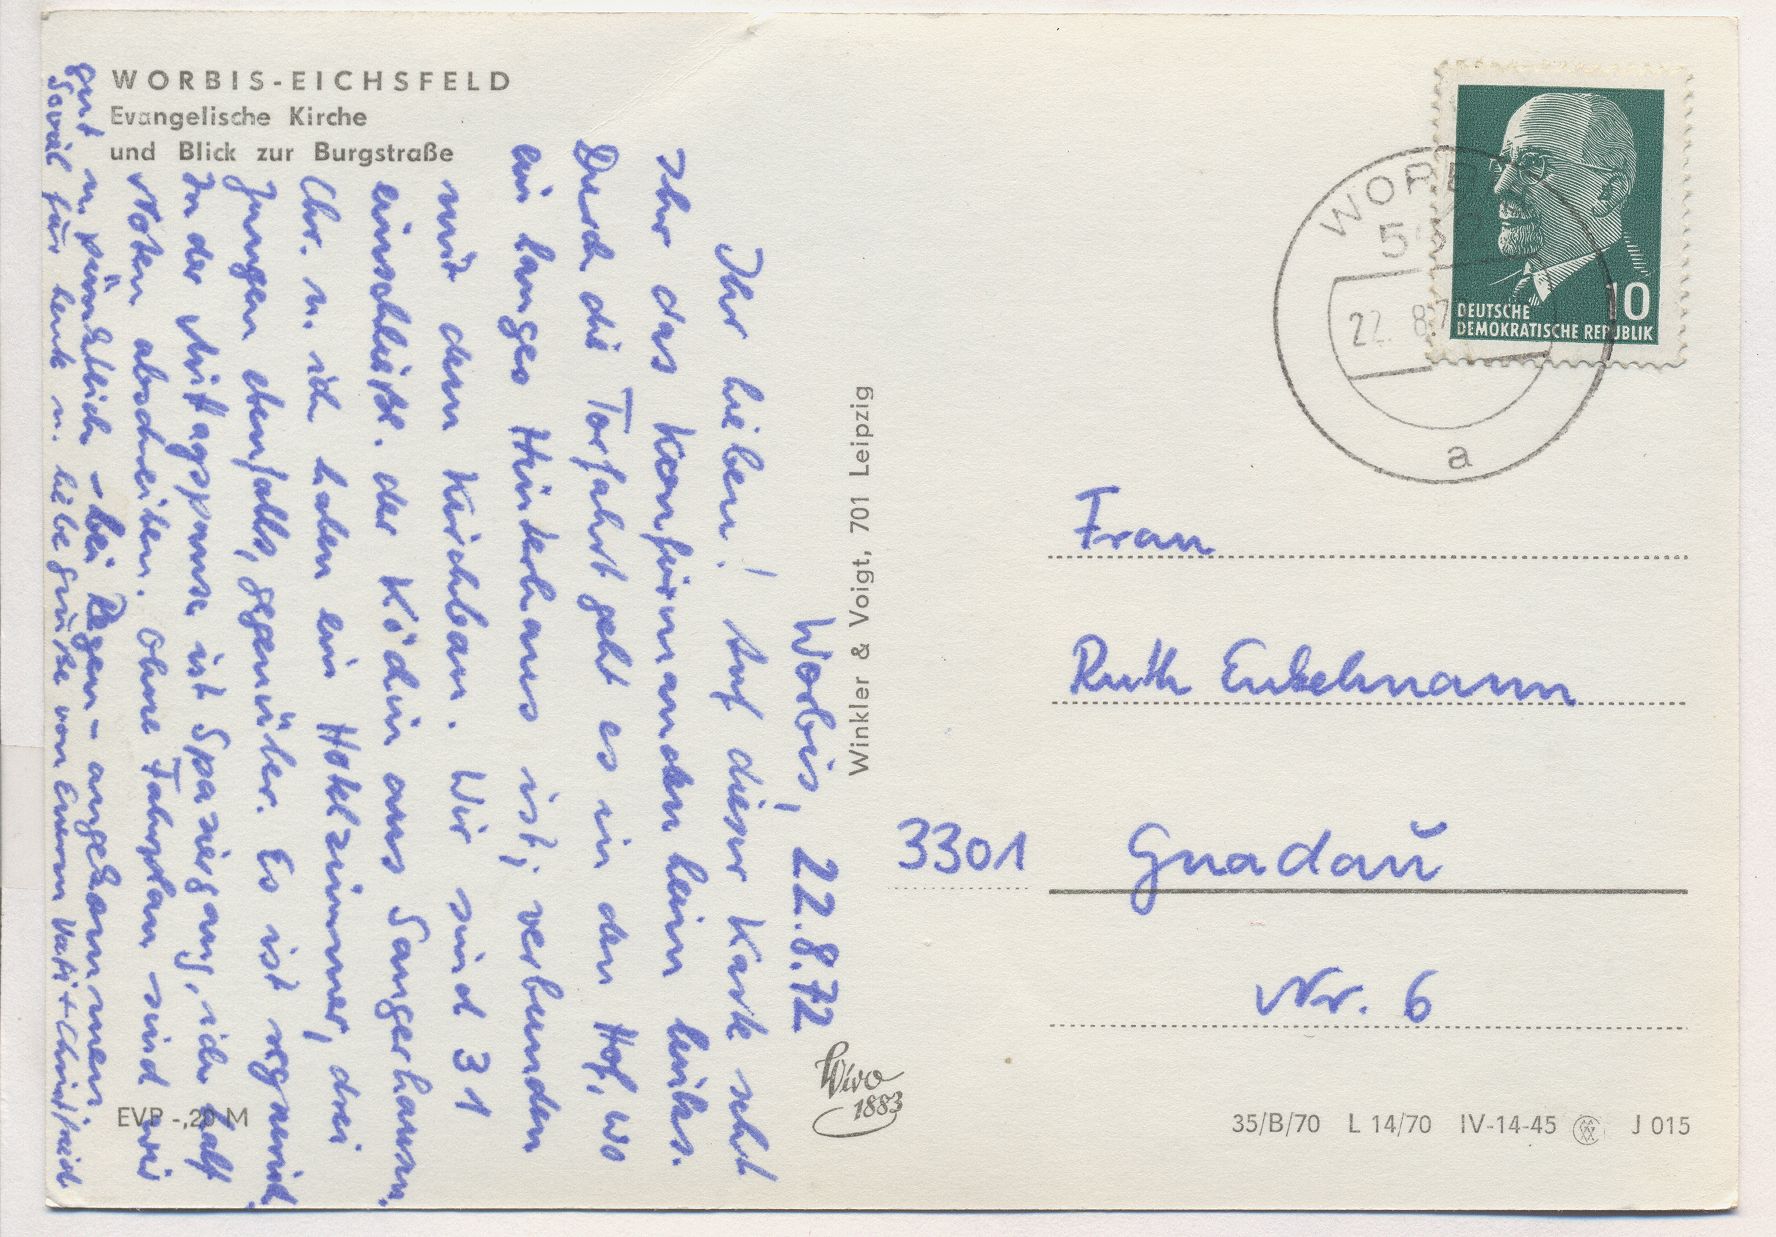 WORBIS-EICHSFELD
Evangelische Kirche
und Blick zur Burgstraße
Worbis, 22.8.72
Ihr lieben! Auf dieser Karte seht
Ihr das Konfirmandenheim links.
Durch die Torfahrt geht es in den Hof, wo
ein langes Hinterhaus ist, verbunden
mit dem Kirchbau. Wir sind 31
einschließl. der Köchin aus Sangerhausen.
Chr. u. ich haben ein Hotelzimmer, drei
Jungen ebenfalls, gegenüber. Es ist regnerisch.
In der Mittagspause ist Spaziergang, ich half
Noten abschreiben. Ohne Fahrplan sind wir
gut u. pünktlich - bei Regen - angekommen.
Soviel für heut u. liebe Grüße von Eurem Vati + Christfried
Winkler & Voigt, 701 Leipzig
Wivo
1883
EVP -,20 M
WORBIS
22. 8.7
a
10
DEUTSCHE
DEMOKRATISCHE REPUBLIK
Frau
Ruth Enkelmann
3301 Gnadau
Nr. 6
35/B/70 L 14/70 IV-14-45 J 015